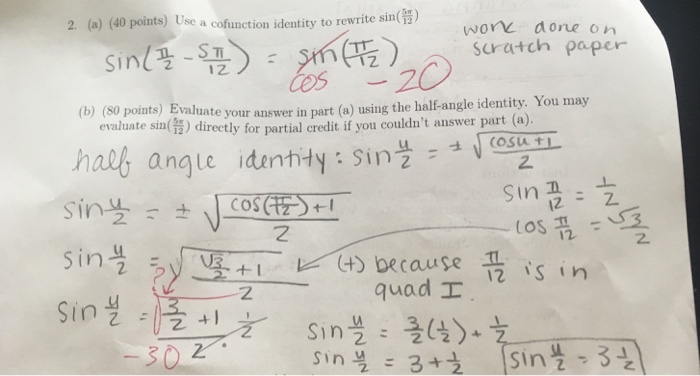 2. (a) (40 points) Use a cofunction identity to rewrite sin(5π/12)
work done on
scratch paper
sin(π/2 - 5π/12) = sin(π/12)
cos -20
(b) (80 points) Evaluate your answer in part (a) using the half-angle identity. You may
evaluate sin(5π/12) directly for partial credit if you couldn't answer part (a).
half angle identity: sin u/2 = ± √(cosu+1)/2
sin u/2 = ± √(cos(π/12)+1)/2
sin π/12 = 1/2
cos π/12 = √3/2
sin u/2 = √(√3/2 +1)/2
?
(+) because π/12 is in
quad I.
sin u/2 = √(3/2 +1)/2 · 1/2
-30
sin u/2 = 3/2(1/2) + 1/2
sin u/2 = 3 + 1/2
sin u/2 = 3 1/2